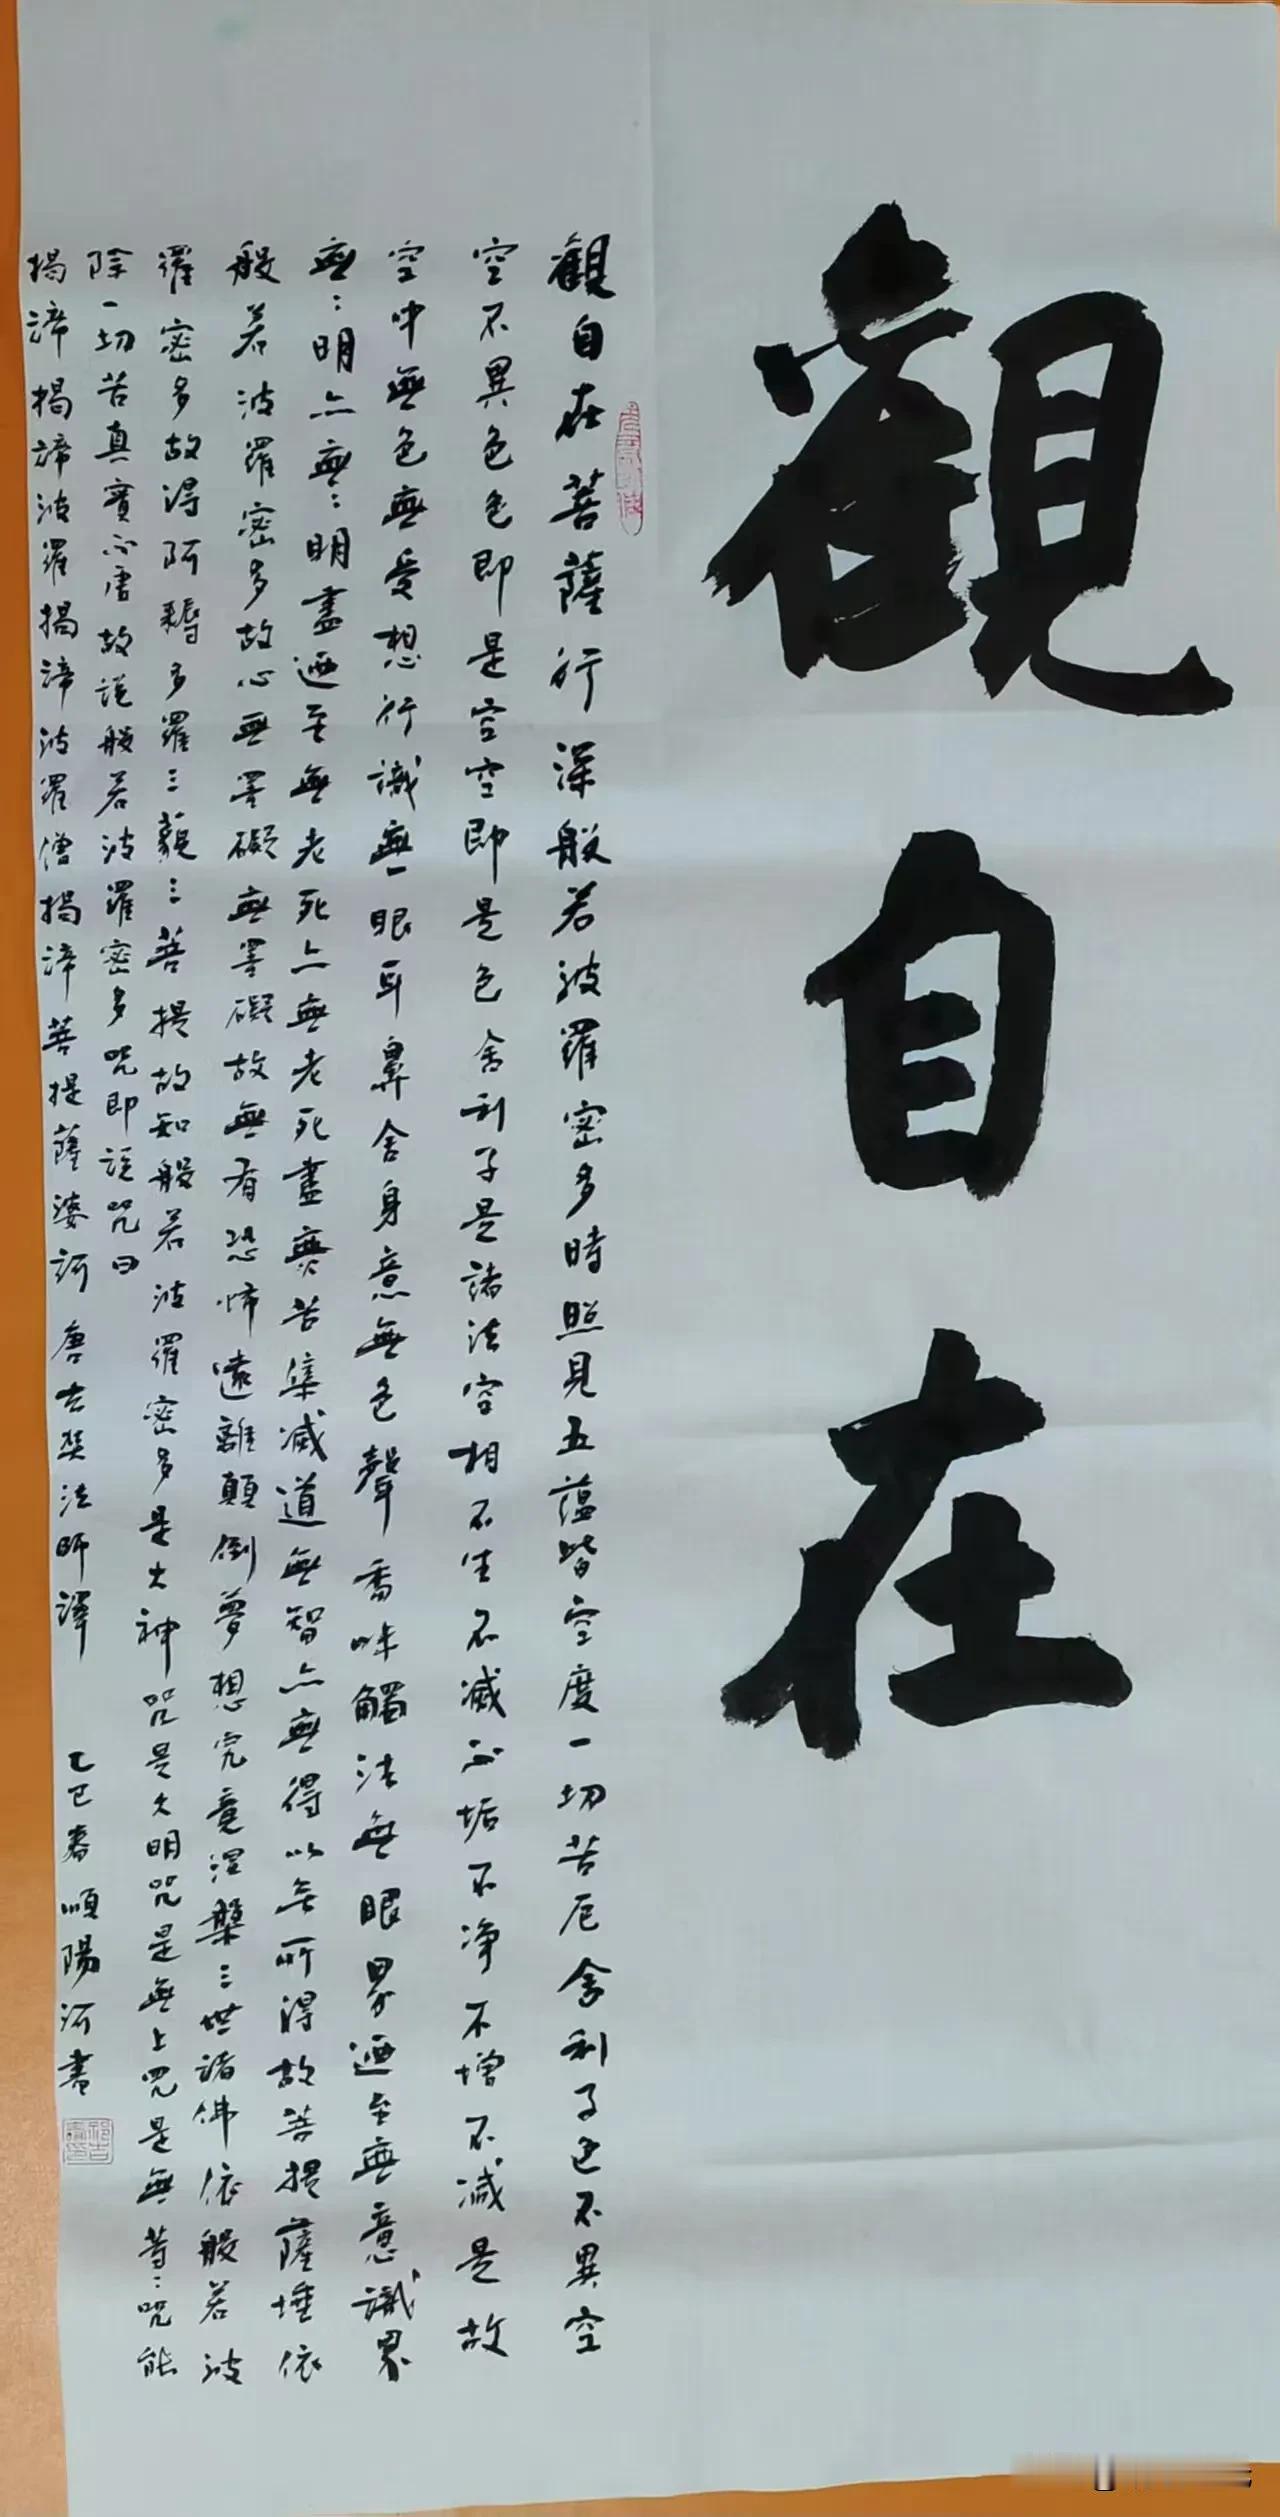 觀自在
觀自在菩薩行深般若波羅密多時照見五蘊皆空度一切苦厄舍利子色不異空
空不異色色即是空空即是色舍利子是諸法空相不生不滅不垢不净不增不減是故
空中無色無受想行識無一眼耳鼻舍身意無色聲香味觸法無眼界迺至無意識界
無:明亦無:明盡迺至無老死亦無老死盡無苦集滅道無智亦無得以無所得故菩提薩埵依
般若波羅密多故心無罣礙無罣礙故無有恐怖遠離顛倒夢想究竟涅槃三世諸佛依般若波
羅密多故得阿耨多羅三藐三菩提故知般若波羅密多是大神咒是大明咒是無上咒是無等:咒能
除一切苦真實不虛故說般若波羅密多咒即說咒曰
揭諦揭諦波羅揭諦波羅僧揭諦菩提薩婆訶 唐玄奘法師譯 乙巳春順陽河書